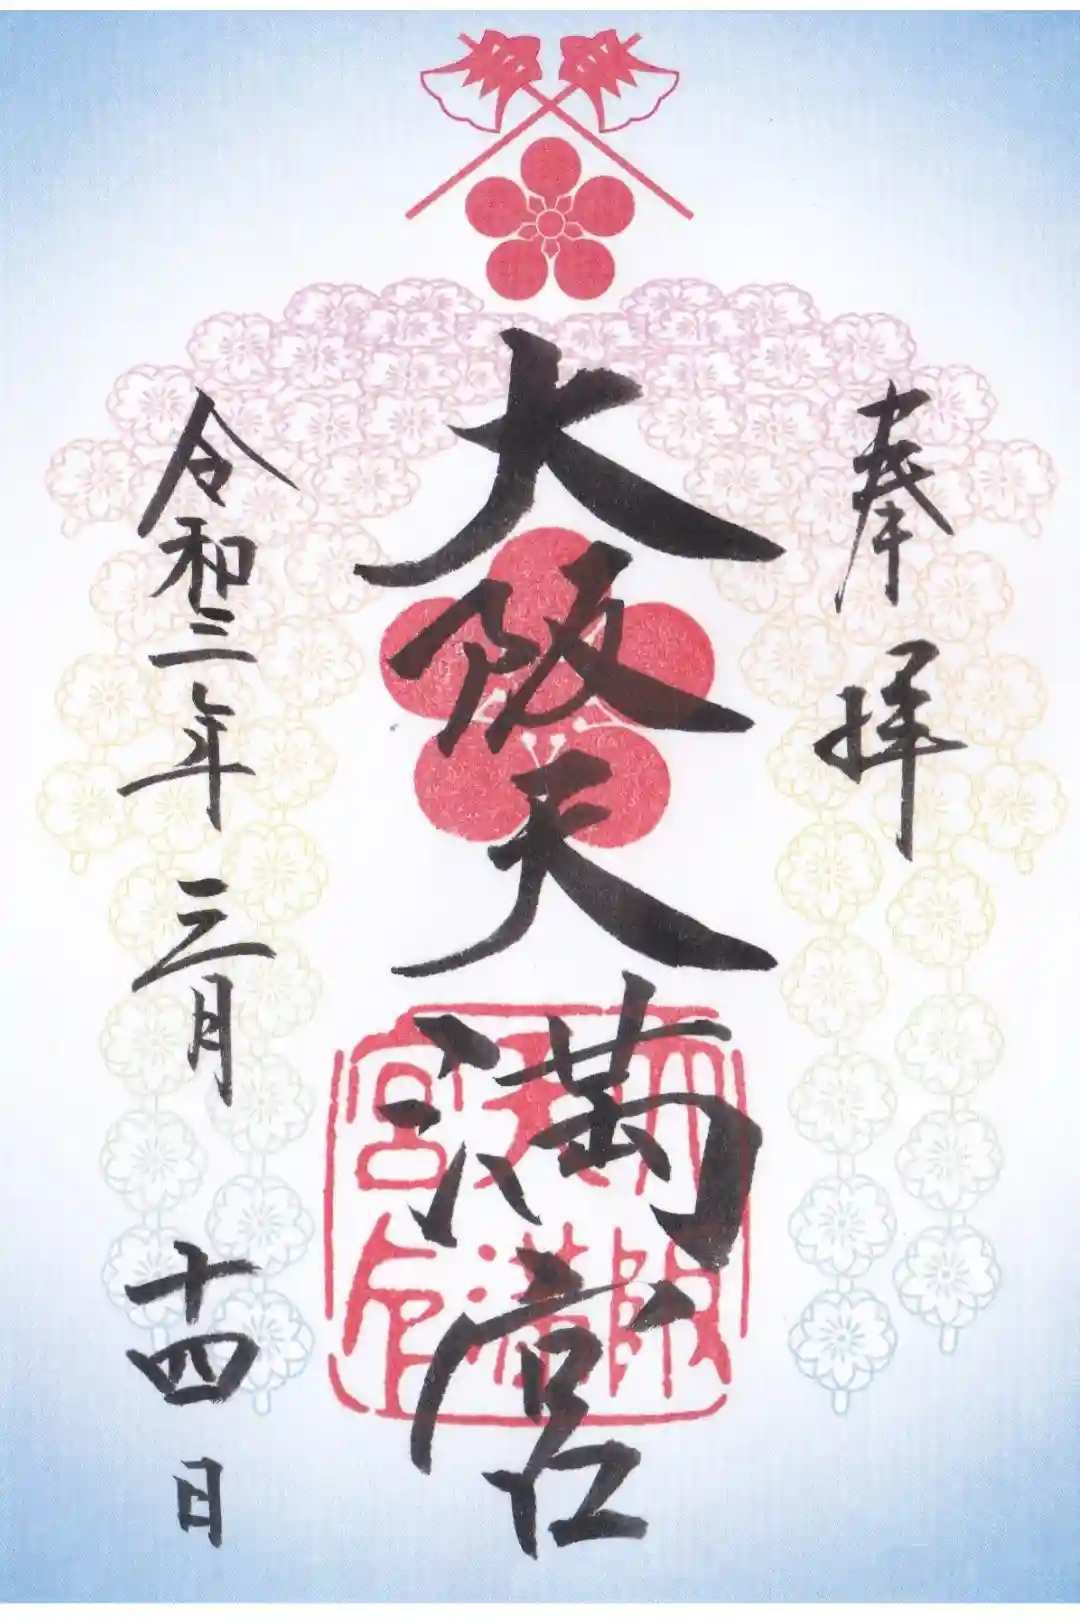 奉拝
大阪天満宮
令和三年三月十四日
大阪天満宮印